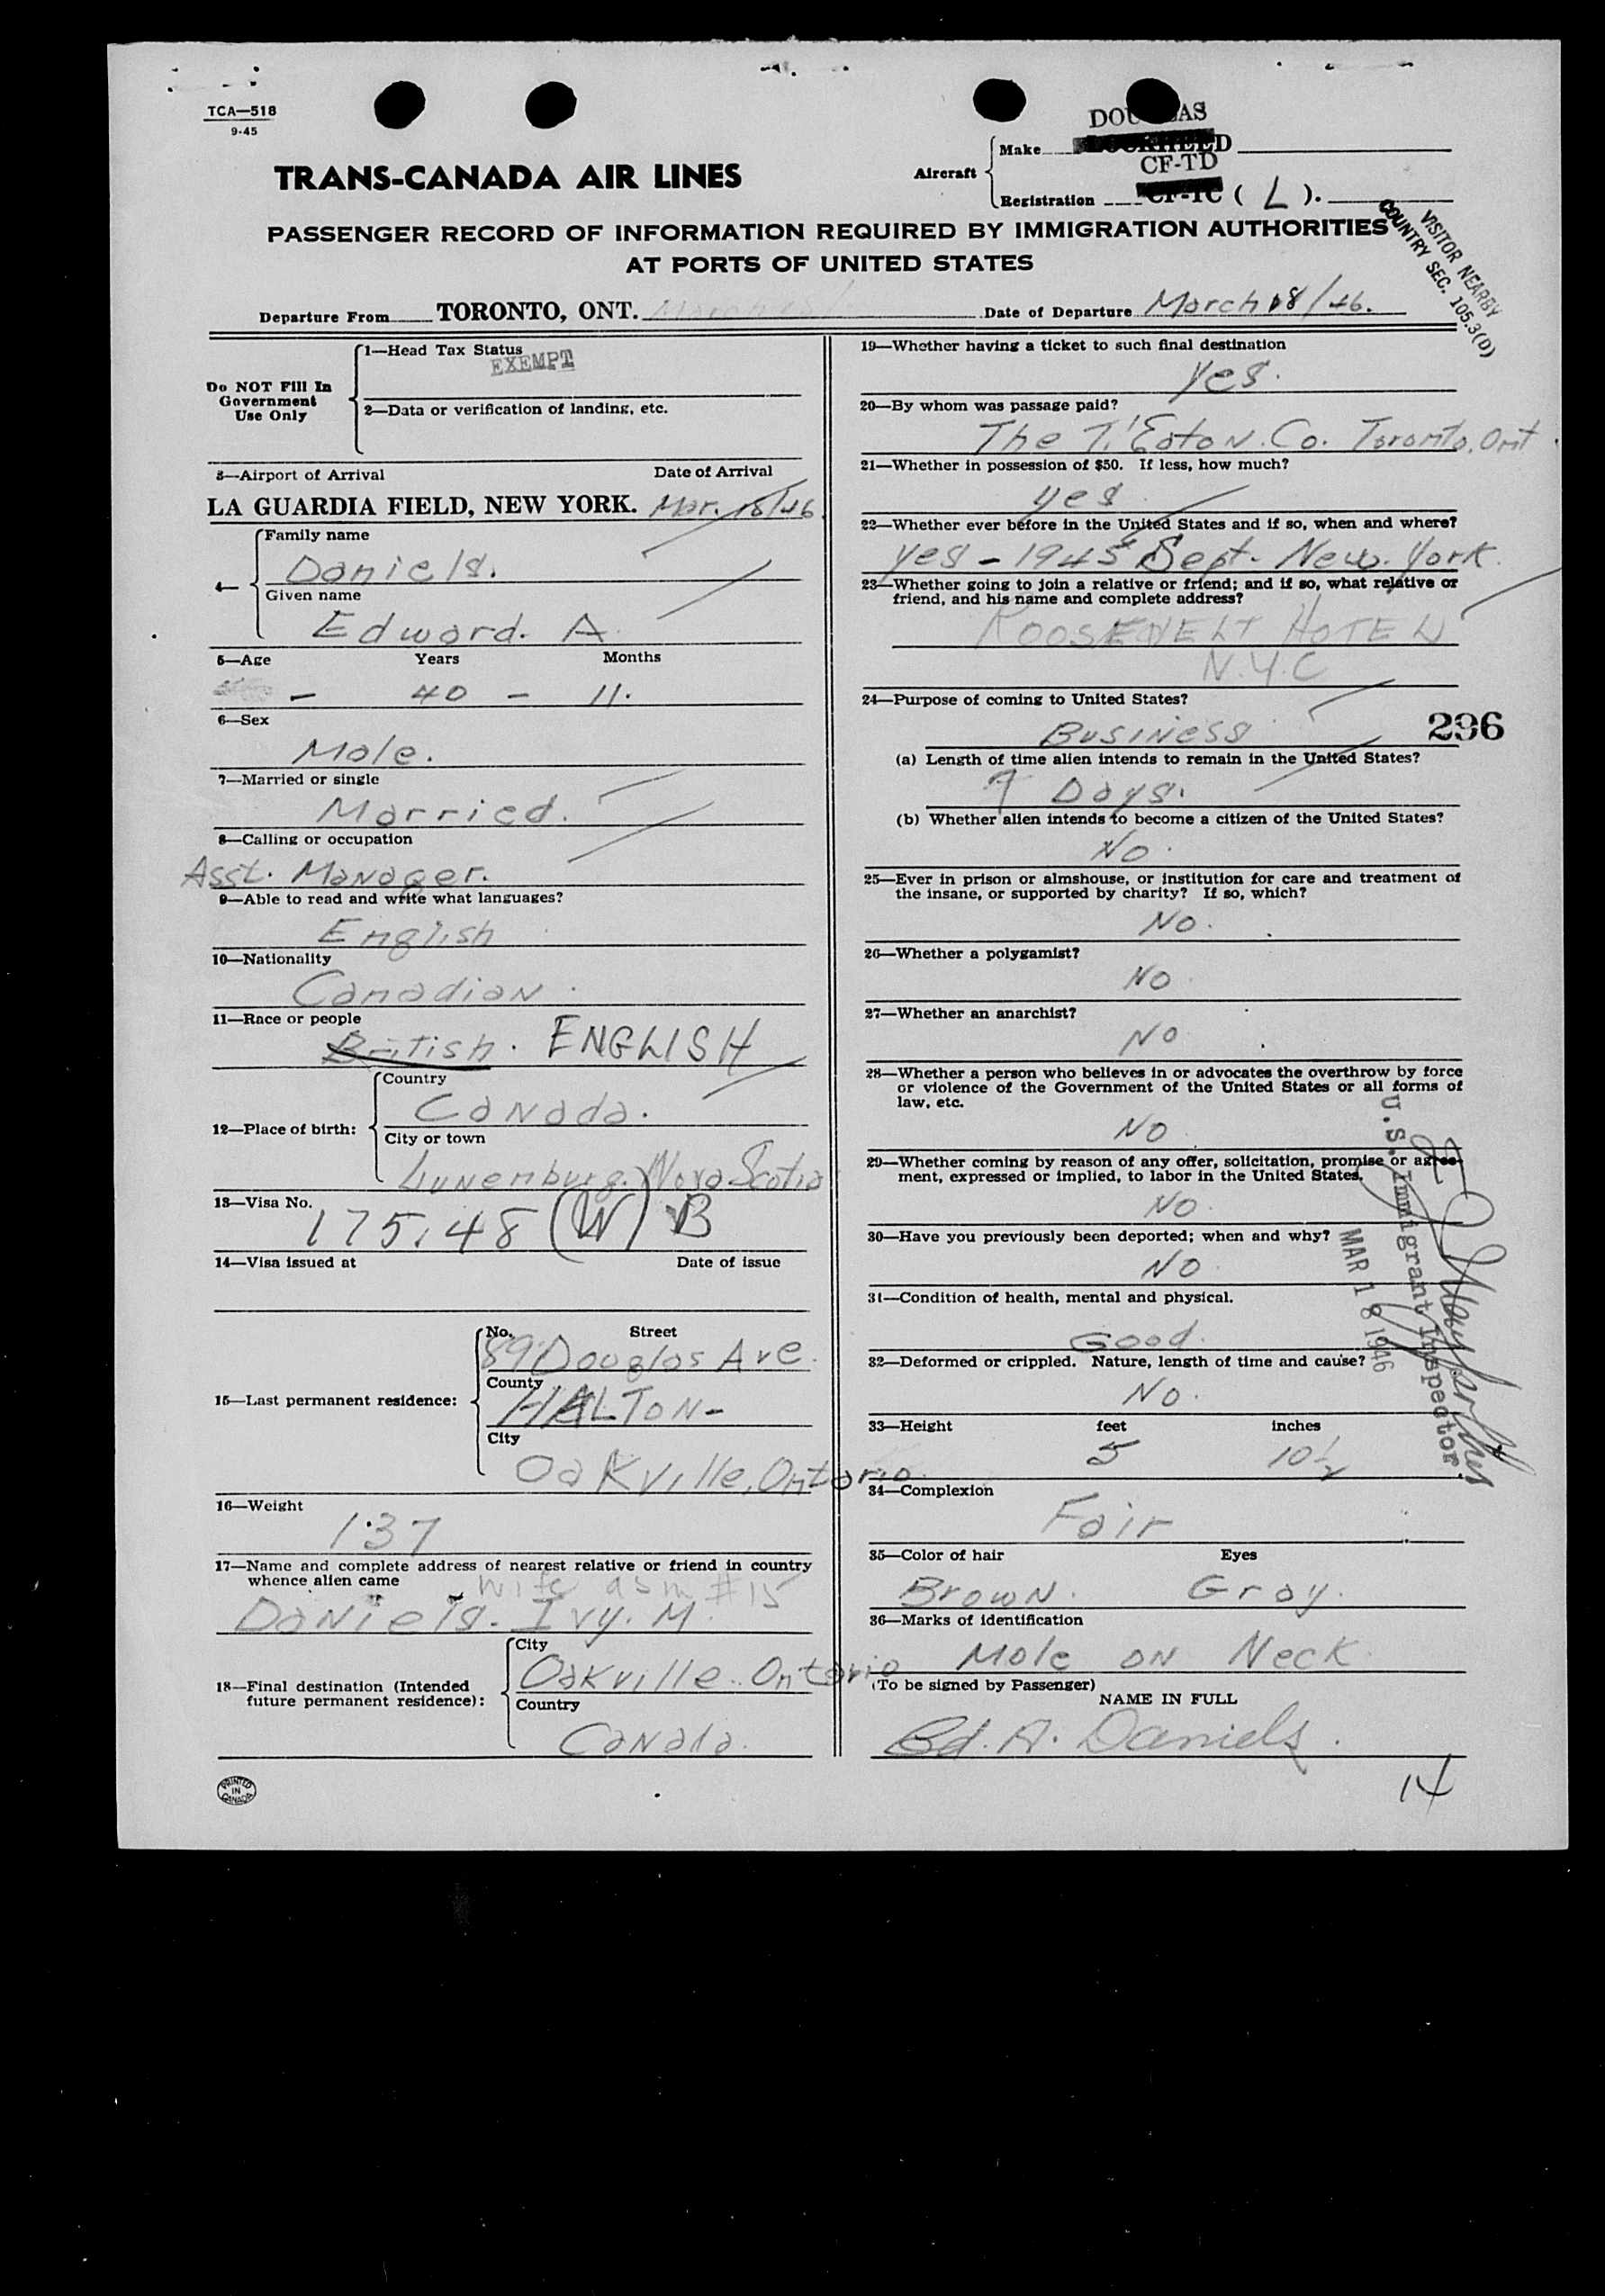 TCA—518
9-45
TRANS-CANADA AIR LINES
Aircraft
Make
DOUGLAS
LOCKHEED
Registration
CF-TD
CF-TC ( L ).
PASSENGER RECORD OF INFORMATION REQUIRED BY IMMIGRATION AUTHORITIES
AT PORTS OF UNITED STATES
VISITOR NEARBY
COUNTRY SEC. 105.3(D)
Departure From TORONTO, ONT.
Date of Departure March 18/46.
Do NOT Fill In
Government
Use Only
1—Head Tax Status
EXEMPT
2—Data or verification of landing, etc.
3—Airport of Arrival Date of Arrival
LA GUARDIA FIELD, NEW YORK. Mar. 18/46.
4—
Family name
Daniels.
Given name
Edward. A.
5—Age Years Months
— 40 — 11.
6—Sex
Male.
7—Married or single
Married.
8—Calling or occupation
Asst. Manager.
9—Able to read and write what languages?
English
10—Nationality
Canadian.
11—Race or people
British. ENGLISH
12—Place of birth:
Country
Canada.
City or town
Lunemburg. Nova Scotia
13—Visa No.
175.48 (W) B
14—Visa issued at Date of issue
15—Last permanent residence:
No. Street
89 Douglas Ave.
County
HALTON-
City
Oakville, Ontario.
16—Weight
137
17—Name and complete address of nearest relative or friend in country
whence alien came
wife as in #15
Daniels. Ivy. M.
18—Final destination (Intended
future permanent residence):
City
Oakville. Ontario
Country
Canada.
PRINTED
IN
CANADA
19—Whether having a ticket to such final destination
Yes.
20—By whom was passage paid?
The T. Eaton. Co. Toronto, Ont.
21—Whether in possession of $50. If less, how much?
yes
22—Whether ever before in the United States and if so, when and where?
yes - 1945 Sept. New. York.
23—Whether going to join a relative or friend; and if so, what relative or
friend, and his name and complete address?
ROOSEVELT HOTEL
N.Y.C
24—Purpose of coming to United States?
Business
296
(a) Length of time alien intends to remain in the United States?
7 Days.
(b) Whether alien intends to become a citizen of the United States?
No.
25—Ever in prison or almshouse, or institution for care and treatment of
the insane, or supported by charity? If so, which?
No.
26—Whether a polygamist?
No
27—Whether an anarchist?
No
28—Whether a person who believes in or advocates the overthrow by force
or violence of the Government of the United States or all forms of
law, etc.
No
29—Whether coming by reason of any offer, solicitation, promise or agree-
ment, expressed or implied, to labor in the United States.
No.
30—Have you previously been deported; when and why?
No.
31—Condition of health, mental and physical.
Good.
32—Deformed or crippled. Nature, length of time and cause?
No.
MAR 18 1946
U.S. Immigrant Inspector
33—Height feet inches
5 10½
34—Complexion
Fair
35—Color of hair Eyes
Brown. Gray.
36—Marks of identification
Mole on Neck.
(To be signed by Passenger)
NAME IN FULL
Ed. A. Daniels.
14